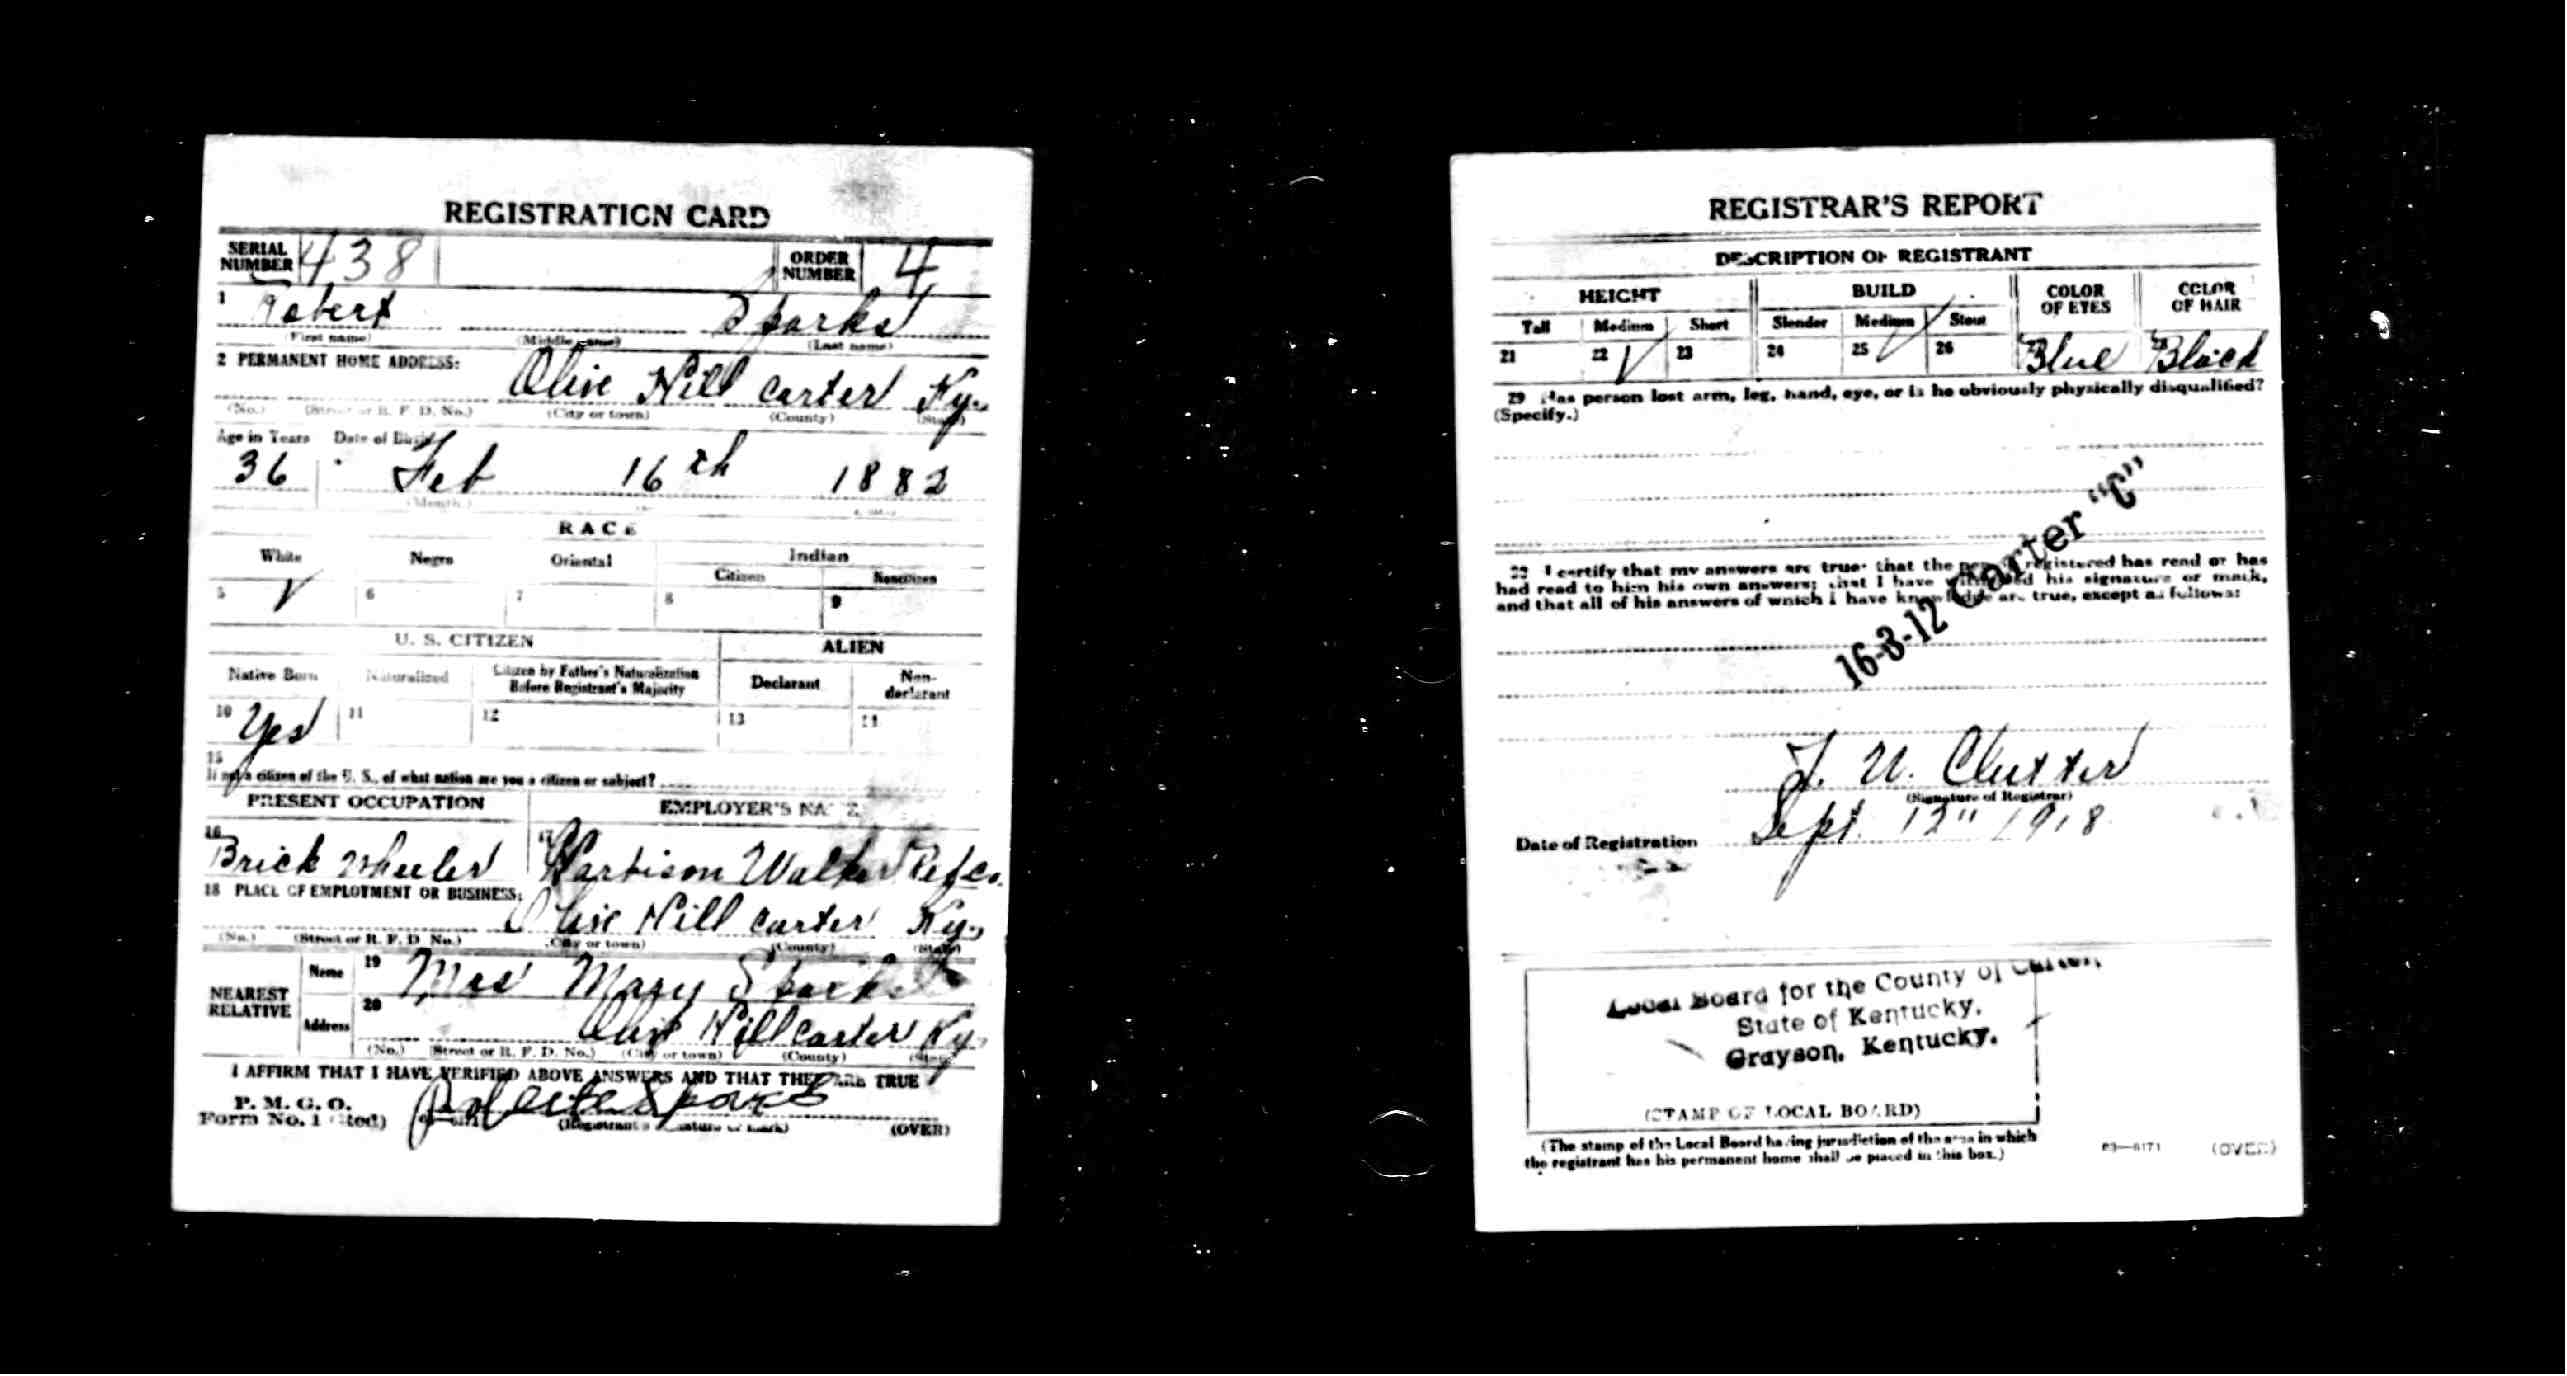 REGISTRATION CARD
SERIAL NUMBER 438 ORDER NUMBER 4
1 Robert Sparks
(First name) (Middle name) (Last name)
2 PERMANENT HOME ADDRESS:
Olive Hill Carter Ky.
(No.) (Street or R. F. D. No.) (City or town) (County) (State)
Age in Years Date of Birth
36 Feb 16th 1882
(Month.)
RACE
White Negro Oriental Indian
Citizen Noncitizen
5 ✓ 6 7 8 9
U. S. CITIZEN ALIEN
Native Born Naturalized Citizen by Father's Naturalization Before Registrant's Majority Declarant Non-declarant
10 Yes 11 12 13 14
15
If not a citizen of the U. S., of what nation are you a citizen or subject?
PRESENT OCCUPATION EMPLOYER'S NAME
16 Brick Wheeler 17 Harbison Walker Ref Co.
18 PLACE OF EMPLOYMENT OR BUSINESS:
Olive Hill Carter Ky.
(No.) (Street or R. F. D. No.) (City or town) (County) (State)
NEAREST RELATIVE
Name 19 Mrs Mary Sparks
Address 20 Olive Hill Carter Ky.
(No.) (Street or R. F. D. No.) (City or town) (County) (State)
I AFFIRM THAT I HAVE VERIFIED ABOVE ANSWERS AND THAT THEY ARE TRUE
P. M. G. O.
Form No. 1 (Red) (Registrant's signature or mark) (OVER)
REGISTRAR'S REPORT
DESCRIPTION OF REGISTRANT
HEIGHT BUILD COLOR OF EYES COLOR OF HAIR
Tall Medium Short Slender Medium Stout
21 22 ✓ 23 24 25 ✓ 26 Blue Black
29 Has person lost arm, leg, hand, eye, or is he obviously physically disqualified?
(Specify.)
30 I certify that my answers are true; that the person registered has read or has
had read to him his own answers; that I have witnessed his signature or mark,
and that all of his answers of which I have knowledge are true, except as follows:
16-3-12 Carter "C"
Clutter
(Signature of Registrar)
Date of Registration Sept. 12" 1918
Local Board for the County of Carter,
State of Kentucky,
Grayson, Kentucky.
(STAMP OF LOCAL BOARD)
(The stamp of the Local Board having jurisdiction of the area in which
the registrant has his permanent home shall be placed in this box.)
03—6171 (OVER)